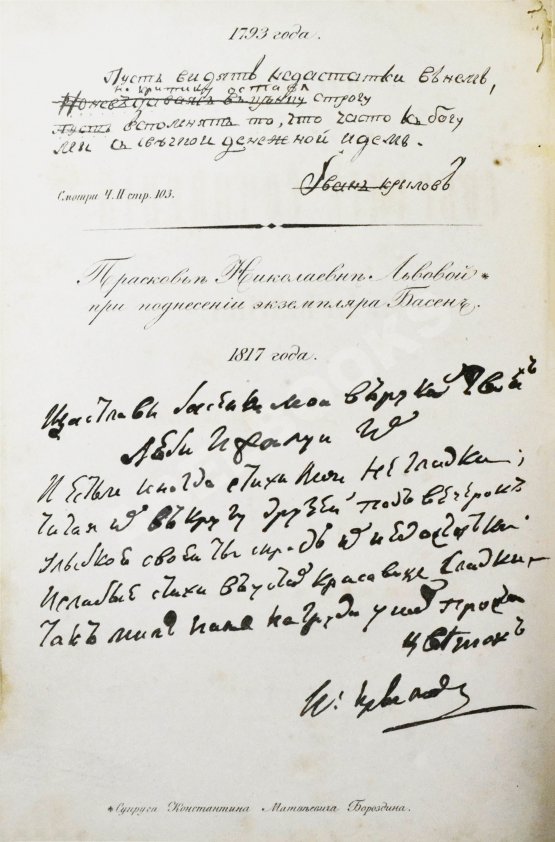 1793 года.
Пусть видятъ недастатки въ немъ,
но критику оставя
строгу
Пусть вспомнятъ то, что часто къ богу
мы съ свѣчой денежной идемъ.
Иванъ Крыловъ
Смотри Ч. II стр. 103.
Прасковьѣ Николаевнѣ Львовой *
при поднесеніи экземпляра Басенъ.
1817 года.
Щастливы басенки мои въ рукахъ твоихъ
Люби и жалуй их
И естьли иногда стихи мои не гладки,
Читая их въ кругу друзей подъ вечерокъ
Улыбкой своей ты скрась их недостатки
И слабые стихи въ устах красавицы сладки
Такъ милъ нам на груди у них простой
цвѣтокъ
И: Крыловъ
* Супруга Константина Матвѣевича Бороздина.